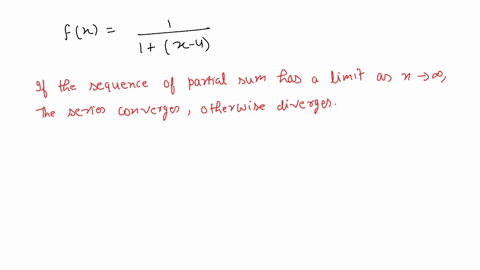 f(x) = 1 / 1 + (x-4)
If the sequence of partial sum has a limit as n → ∞,
The series converges, otherwise diverges.